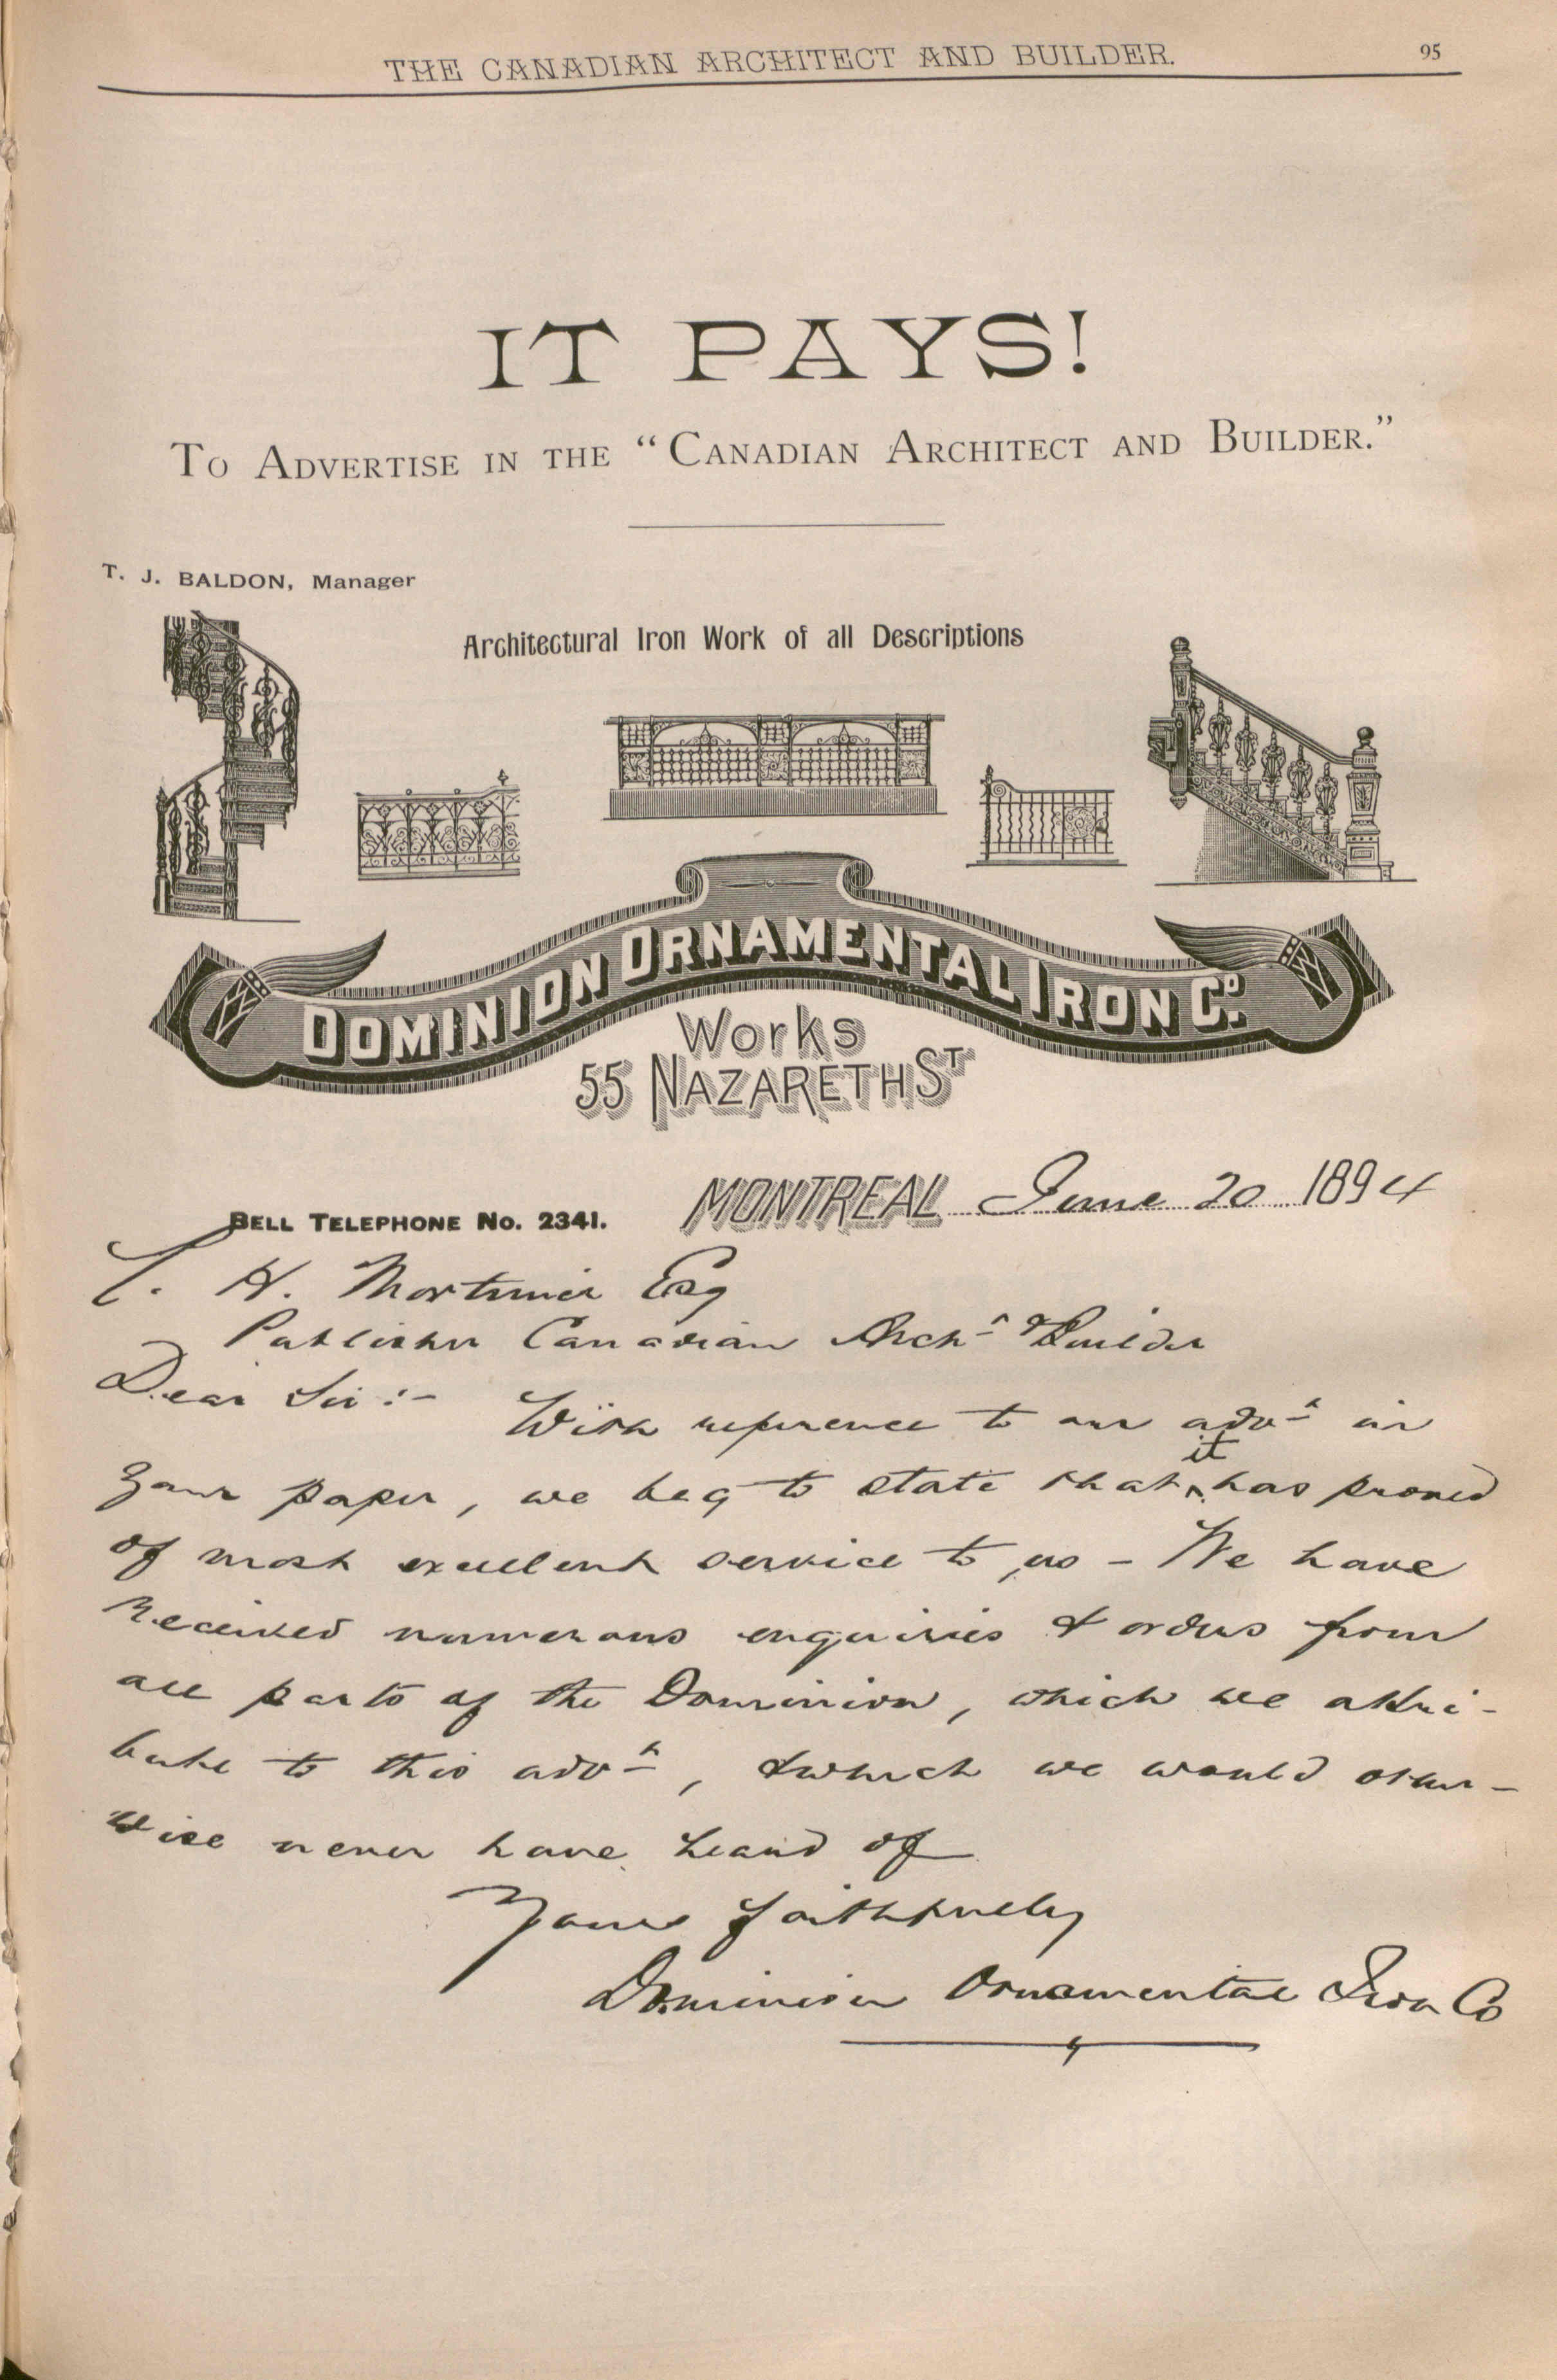 THE CANADIAN ARCHITECT AND BUILDER.
95
IT PAYS!
TO ADVERTISE IN THE "CANADIAN ARCHITECT AND BUILDER."
T. J. BALDON, Manager
Architectural Iron Work of all Descriptions
DOMINION ORNAMENTAL IRON Co.
Works
55 NAZARETH ST
MONTREAL June 20 1894
BELL TELEPHONE No. 2341.
C. H. Mortimer Esq
Publisher Canadian Archt & Builder
Dear Sir :- With reference to our advt in
your paper, we beg to state that it has proved
of most excellent service to us - We have
received numerous enquiries & orders from
all parts of the Dominion, which we attri-
bute to this advt, & which we would other-
wise never have heard of
Yours faithfully
Dominion Ornamental Iron Co